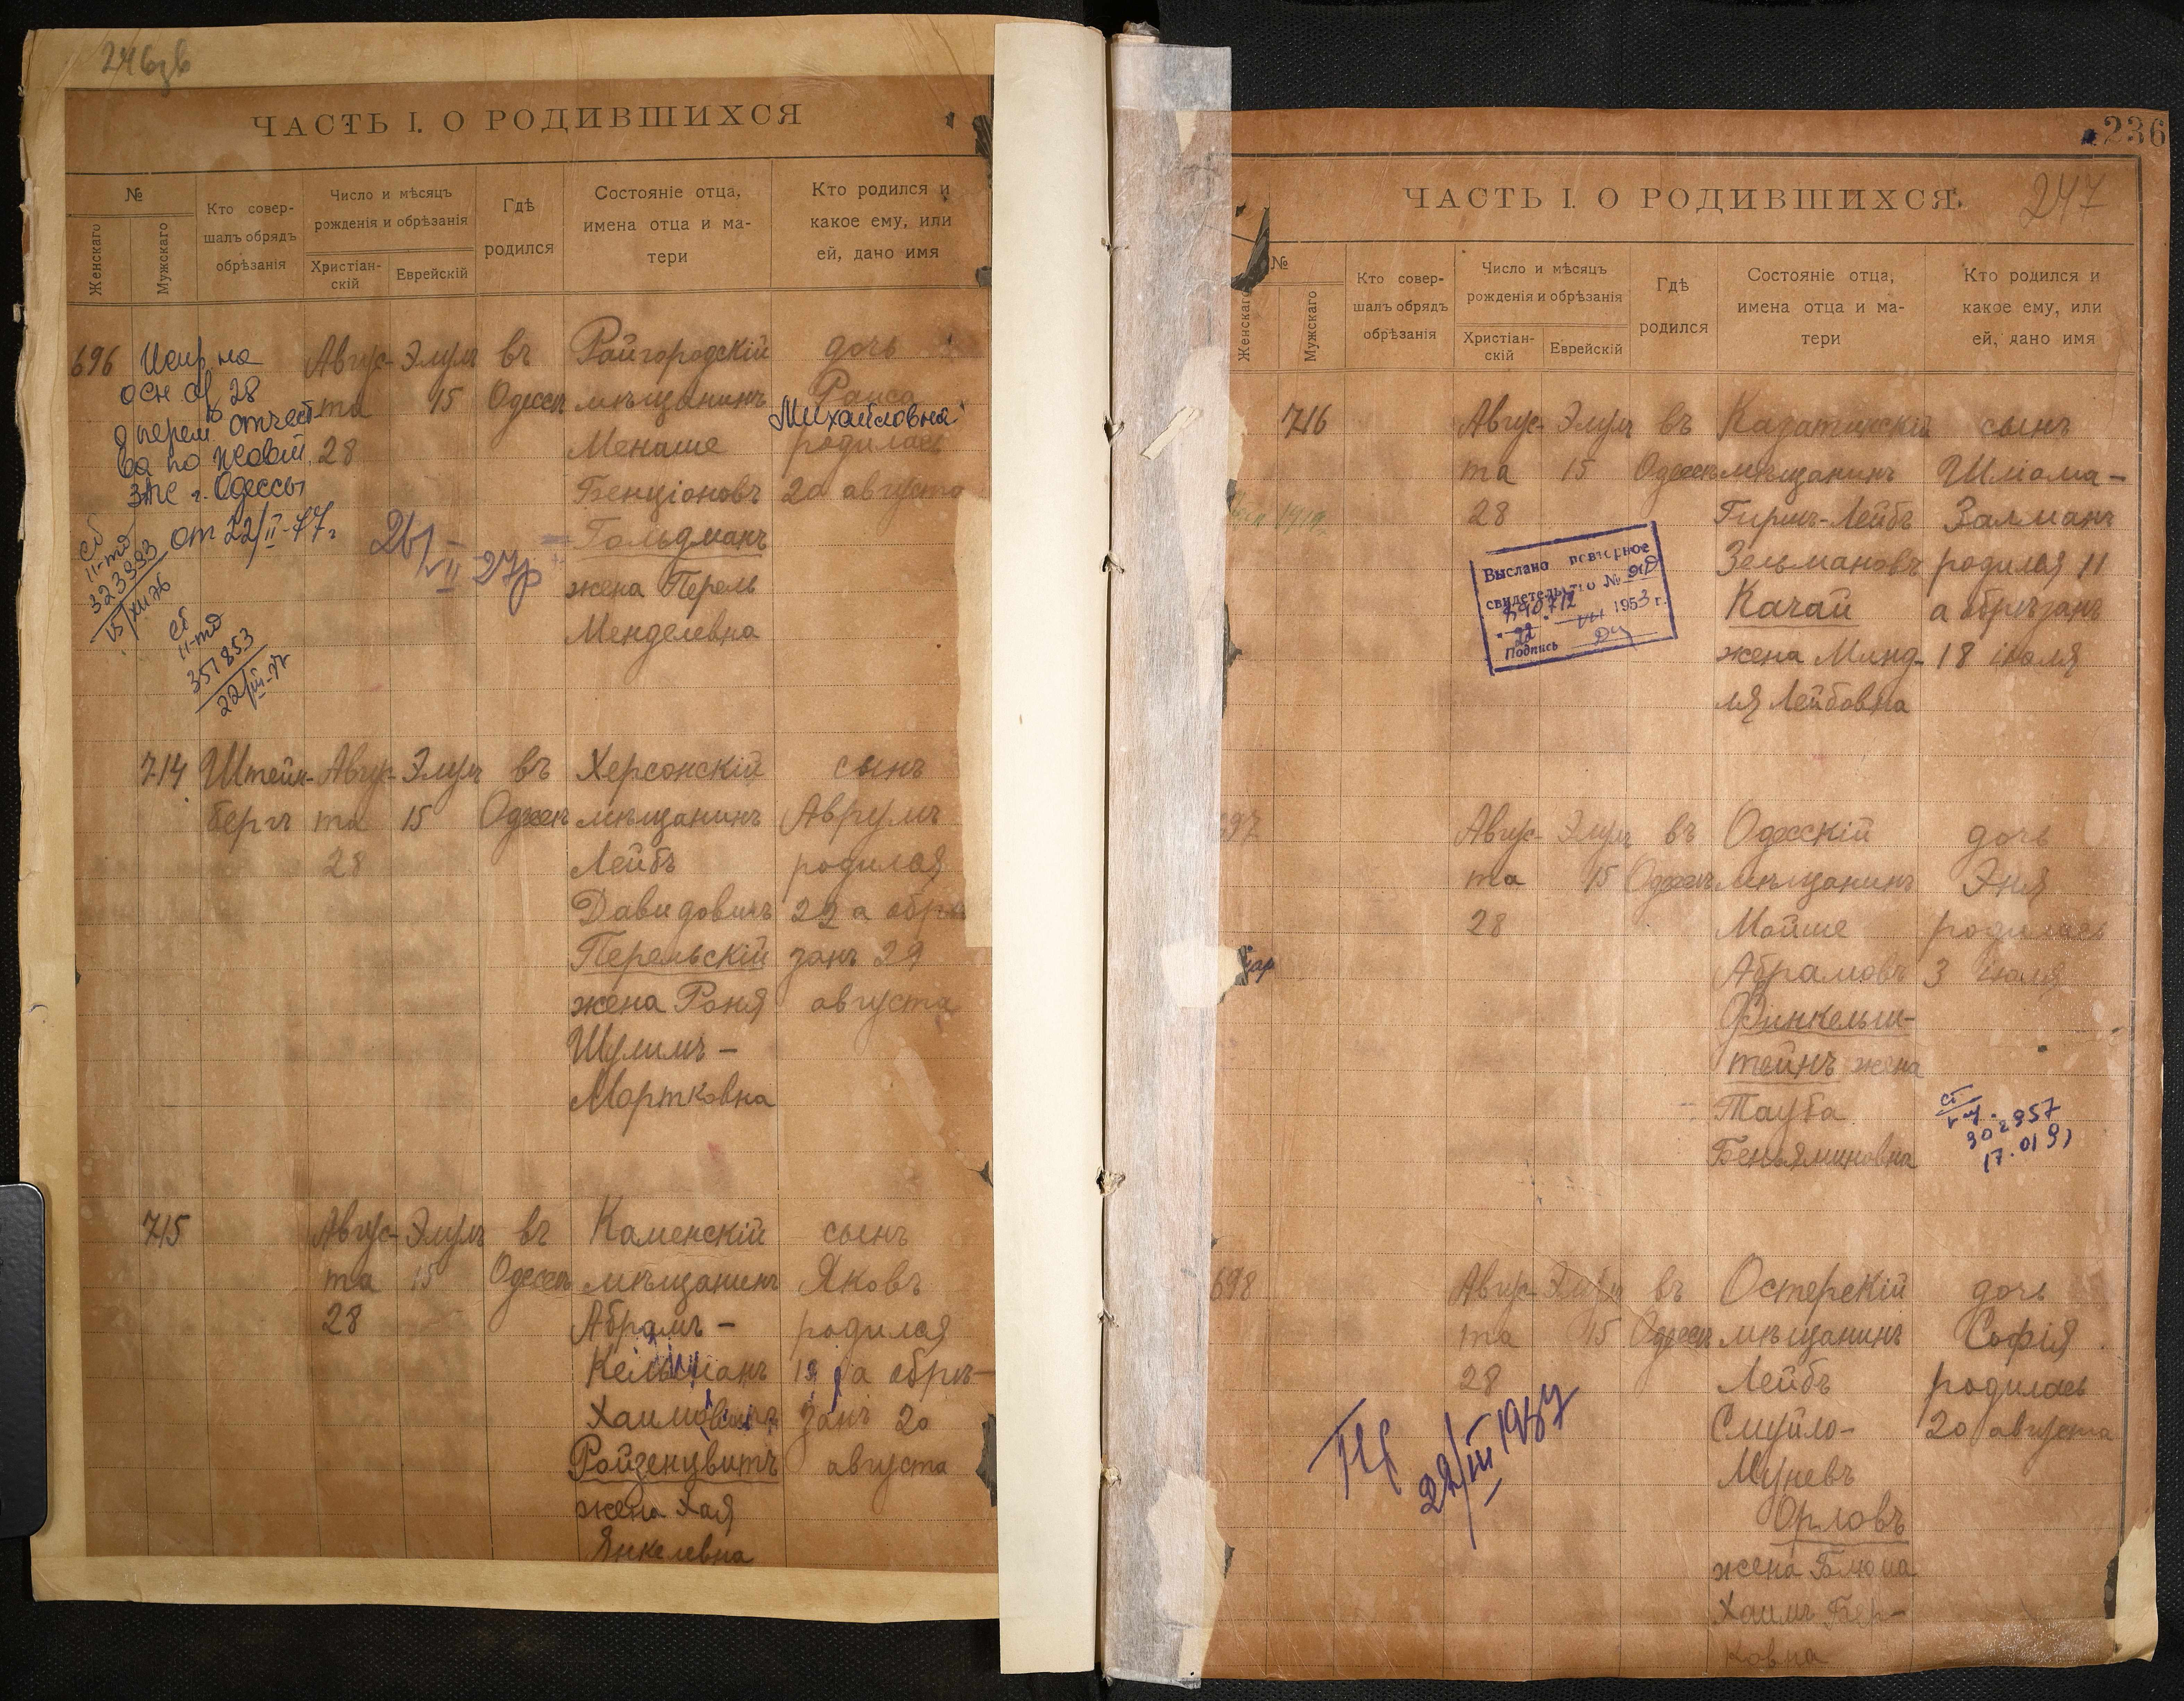 ЧАСТЬ I. О РОДИВШИХСЯ
№
Женскаго
Мужскаго
Кто совер-
шалъ обрядъ
обрѣзанія
Число и мѣсяцъ
рожденія и обрѣзанія
Христіан-
скій
Еврейскій
Гдѣ
родился
Состояніе отца,
имена отца и ма-
тери
Кто родился и
какое ему, или
ей, дано имя
696
на
осн. 28
о перем. отчест
ва по
ЗАГС г. Одессы
от 22/II-77 г
323893
15/XII 76
351853
22/III-77
Авгус-
та
28
Элулъ
15
въ
Одессѣ
Райгородскій
мѣщанинъ
Менаше
Бенціоновъ
Гольдманъ
жена Перель
Менделевна
дочь
Раиса
Михайловна
родилась
20 августа
714
Штейн-
бергъ
Авгус-
та
28
Элулъ
15
въ
Одессѣ
Херсонскій
мѣщанинъ
Лейбъ
Давидовичъ
Перельскій
жена Роня
Шулимъ-
Мортковна
сынъ
Аврумъ
родился
22 а обрѣ
занъ 29
августа
715
Авгус-
та
28
Элулъ
15
въ
Одессѣ
Каменскій
мѣщанинъ
Абрамъ-
Кельманъ
Ройзенцвитъ
жена Хая
Янкелевна
сынъ
Яковъ
родился
13 а обрѣ-
занъ 20
августа
236
247
ЧАСТЬ I. О РОДИВШИХСЯ.
№
Женскаго
Мужскаго
Кто совер-
шалъ обрядъ
обрѣзанія
Число и мѣсяцъ
рожденія и обрѣзанія
Христіан-
скій
Еврейскій
Гдѣ
родился
Состояніе отца,
имена отца и ма-
тери
Кто родился и
какое ему, или
ей, дано имя
716
Авгус-
та
28
Элулъ
15
въ
Одессѣ
мѣщанинъ
Гиршъ-Лейбъ
Зельмановъ
Качай
жена Минд-
ля Лейбовна
сынъ
Шліома-
Залманъ
родился 11
а обрѣзанъ
18 іюля
Выслано повторное
свидетельство №
1953 г.
Подпись
697
Авгус-
та
28
Элулъ
15
въ
Одессѣ
Одесскій
мѣщанинъ
Мойше
Абрамовъ
Финкельш-
тейнъ жена
Тауба
Беньяминовна
дочь
Эня
родилась
3 іюля
302957
17.01 91
698
Авгус-
та
28
Элулъ
15
въ
Одессѣ
Остерскій
мѣщанинъ
Лейбъ
Смуйло-
Муневъ
Орловъ
жена Блюма
Хаимъ Бер-
ковна
дочь
Софія
родилась
20 августа
22/III 1957